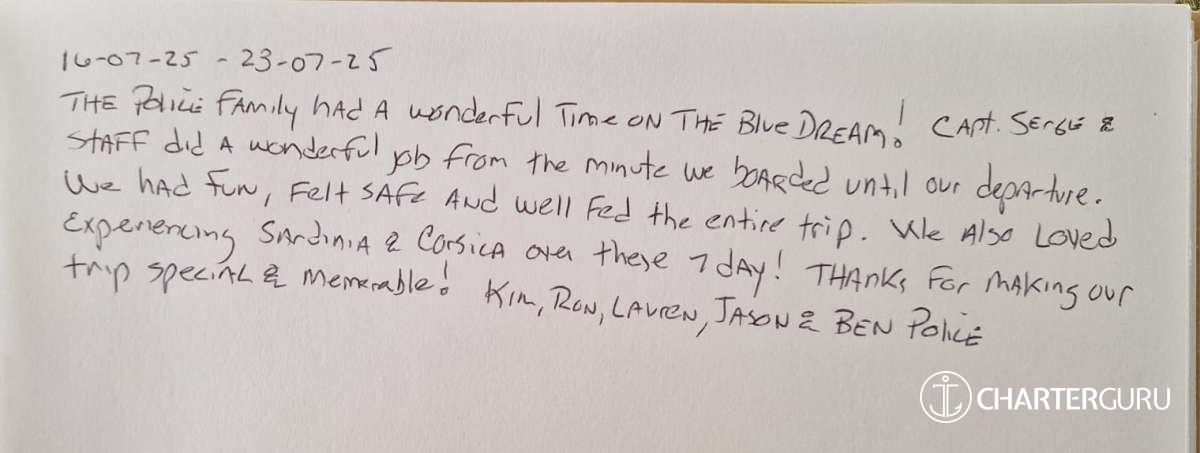 16-07-25 - 23-07-25
THE Police FAMily hAd A wonderful Time ON THE Blue DREAM! CApt. SERGE &
STAFF did A wonderful job from the minute we boARded until our depArture.
We hAd fun, Felt SAFe ANd well Fed the entire trip. We Also Loved
Experiencing SArdiniA & CorsicA over these 7 dAy! THAnks For mAking our
trip speciAL & memorable! Kim, RoN, LAUREN, JASON & BEN Police
CHARTERGURU